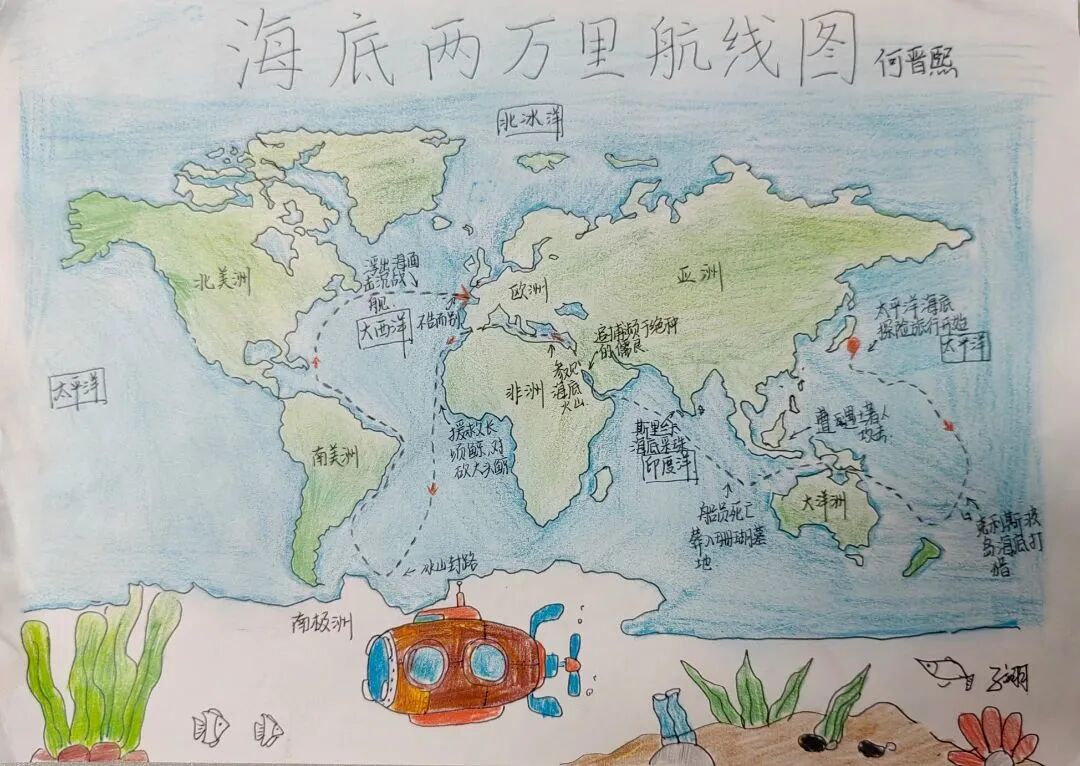 海底两万里航线图
何晋熙
北冰洋
浮出海面
击沉战
舰
北美洲
欧洲
亚洲
大西洋
不告而别
太平洋海底
探险旅行开始
太平洋
追捕频于绝种
的儒艮
太平洋
非洲
参观
海底
火山
南美洲
援救长
须鲸,对
砍大头鲸
斯里兰卡
海底采珠
印度洋
土著人
攻击
大洋洲
船员死亡
葬入珊瑚墓
地
克利斯波
岛海底打
猎
冰山封路
南极洲
子翊